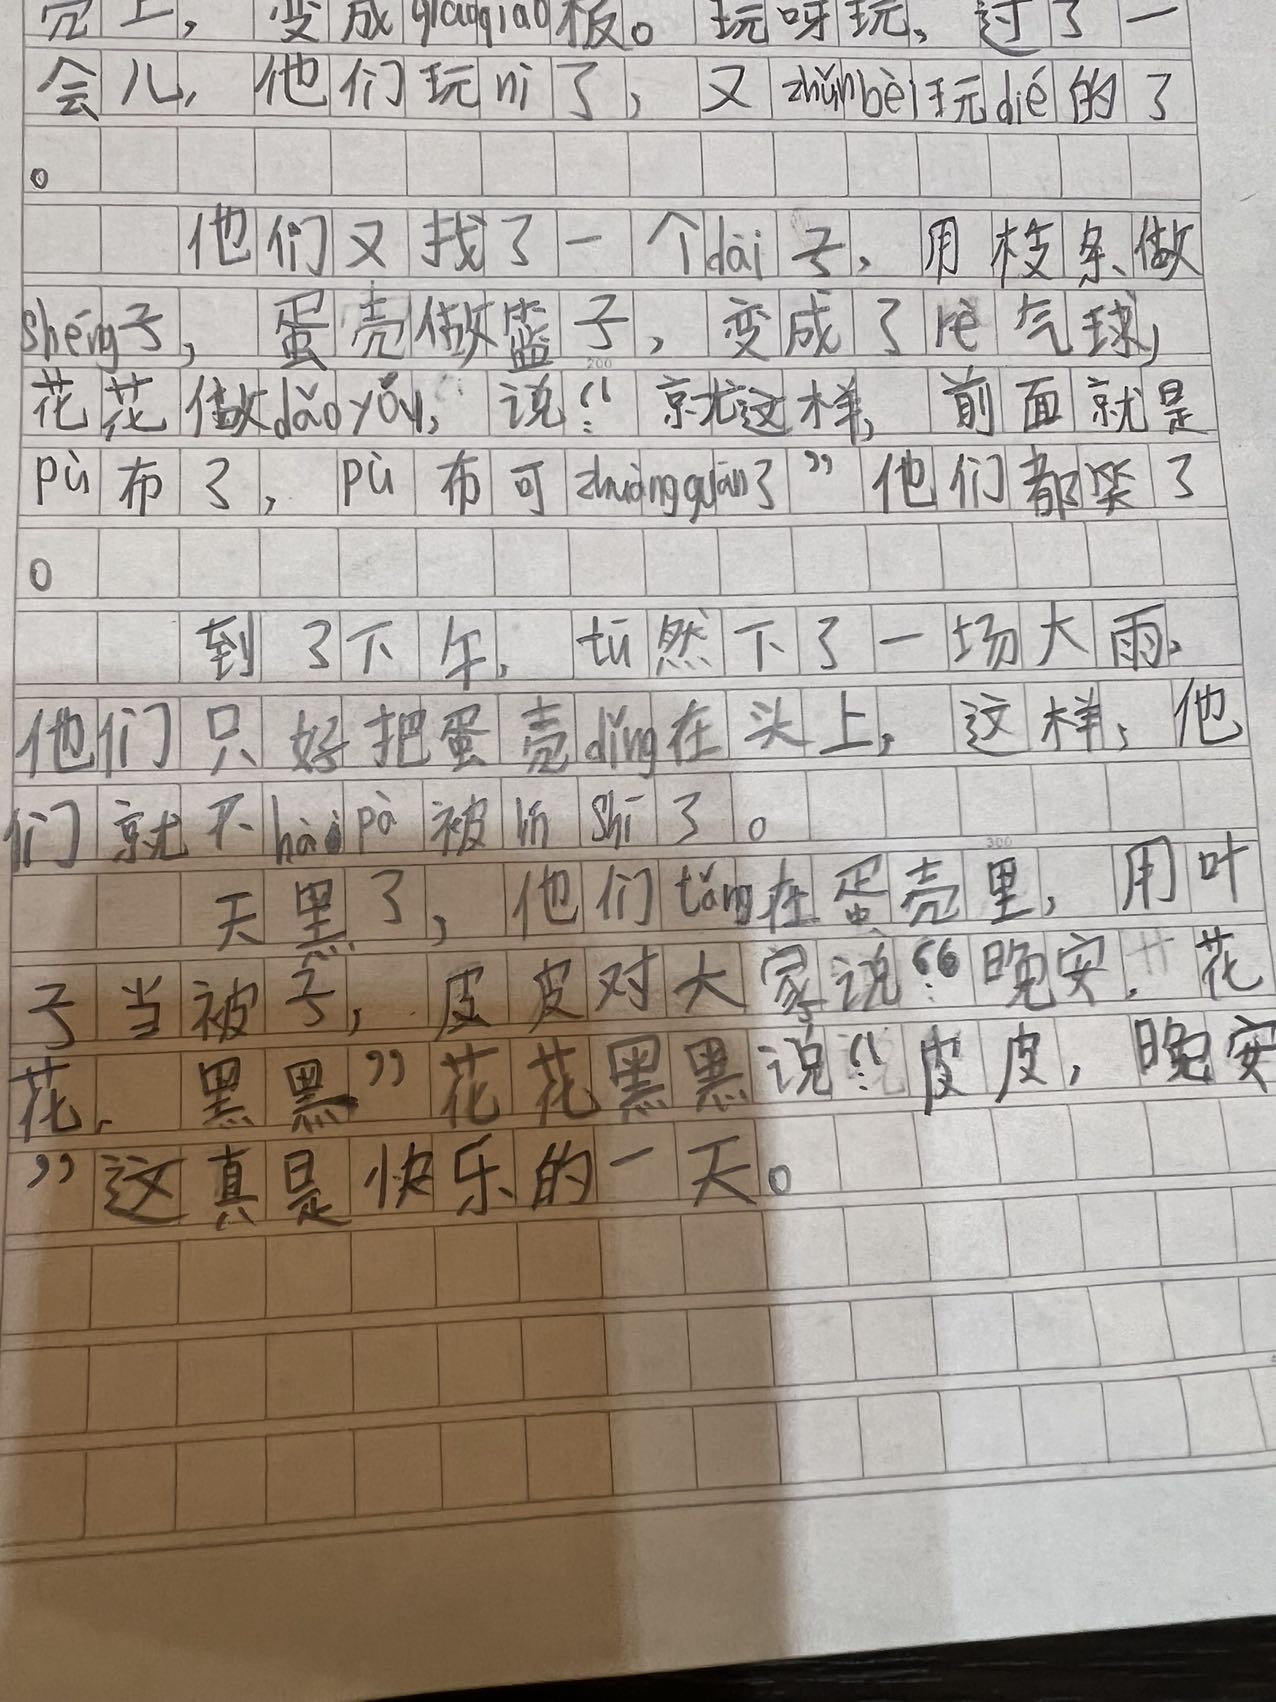 壳上，变成qiāoqiāo板。玩呀玩，过了一
会儿，他们玩nì了，又zhǔnbèi玩dié的了
。
他们又找了一个dài子，用枝条做
shéng子，蛋壳做篮子，变成了rè气球，
花花做dǎoyóu，说：“就这样，前面就是
pù布了，pù布可zhuàngguān了”他们都笑了
。
到了下午，tū然下了一场大雨，
他们只好把蛋壳dǐng在头上，这样，他
们就不hàipà被lín shī了。
天黑了，他们tǎng在蛋壳里，用叶
子当被子，皮皮对大家说：“晚安，花
花，黑黑”花花黑黑说：“皮皮，晚安
”这真是快乐的一天。
200
300